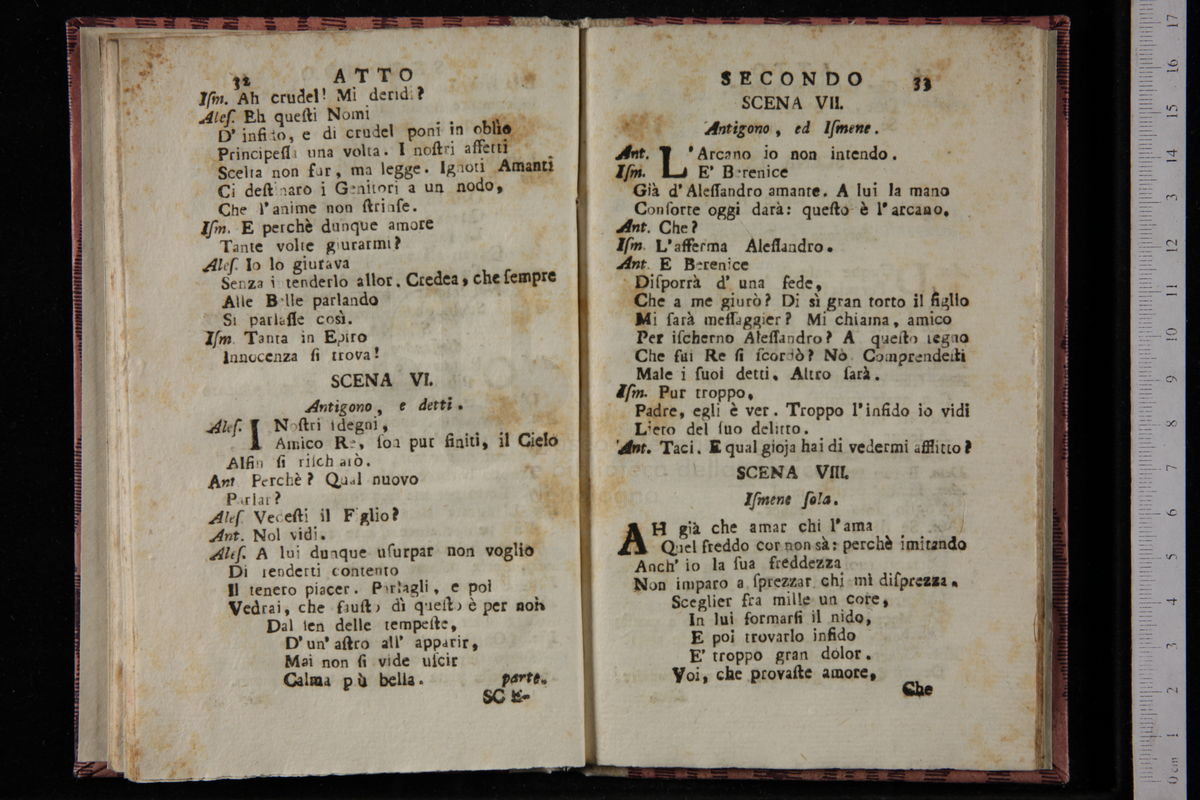 32 ATTO
Iſm. Ah crudel! Mi deridi?
Aleſ. Eh queſti Nomi
D' infido, e di crudel poni in oblio
Principeſſa una volta. I noſtri affetti
Scelta non fur, ma legge. Ignoti Amanti
Ci deſtinaro i Genitori a un nodo,
Che l'anime non ſtrinſe.
Iſm. E perchè dunque amore
Tante volte giurarmi?
Aleſ. Io lo giurava
Senza intenderlo allor. Credea, che ſempre
Alle Belle parlando
Si parlaſſe così.
Iſm. Tanta in Epiro
Innocenza ſi trova!
SCENA VI.
Antigono, e detti.
Aleſ. I Noſtri ſdegni,
Amico Re, ſon pur finiti, il Cielo
Alfin ſi riſchiarò.
Ant. Perchè? Qual nuovo
Parlar?
Aleſ. Vedeſti il Figlio?
Ant. Nol vidi.
Aleſ. A lui dunque uſurpar non voglio
Di renderti contento
Il tenero piacer. Parlagli, e poi
Vedrai, che fauſto dì queſto è per noi
Dal ſen delle tempeſte,
D'un' aſtro all' apparir,
Mai non ſi vide uſcir
Calma più bella. parte.
SCE-
SECONDO 33
SCENA VII.
Antigono, ed Iſmene.
Ant. L'Arcano io non intendo.
Iſm. E' Berenice
Già d'Aleſſandro amante. A lui la mano
Conſorte oggi darà: queſto è l'arcano.
Ant. Che?
Iſm. L'afferma Aleſſandro.
Ant. E Berenice
Diſporrà d' una fede,
Che a me giurò? Di sì gran torto il figlio
Mi ſarà meſſaggier? Mi chiama, amico
Per iſcherno Aleſſandro? A queſto ſegno
Che fui Re ſi ſcordò? Nò. Comprendeſti
Male i ſuoi detti. Altro ſarà.
Iſm. Pur troppo,
Padre, egli è ver. Troppo l'infido io vidi
Lieto del ſuo delitto.
Ant. Taci. E qual gioja hai di vedermi afflitto?
SCENA VIII.
Iſmene ſola.
AH già che amar chi l'ama
Quel freddo cor non sà: perchè imitando
Anch' io la ſua freddezza
Non imparo a ſprezzar chi mì diſprezza.
Sceglier fra mille un core,
In lui formarſi il nido,
E poi trovarlo infido
E' troppo gran dolor.
Voi, che provaſte amore,
Che
0 cm 1 2 3 4 5 6 7 8 9 10 11 12 13 14 15 16 17